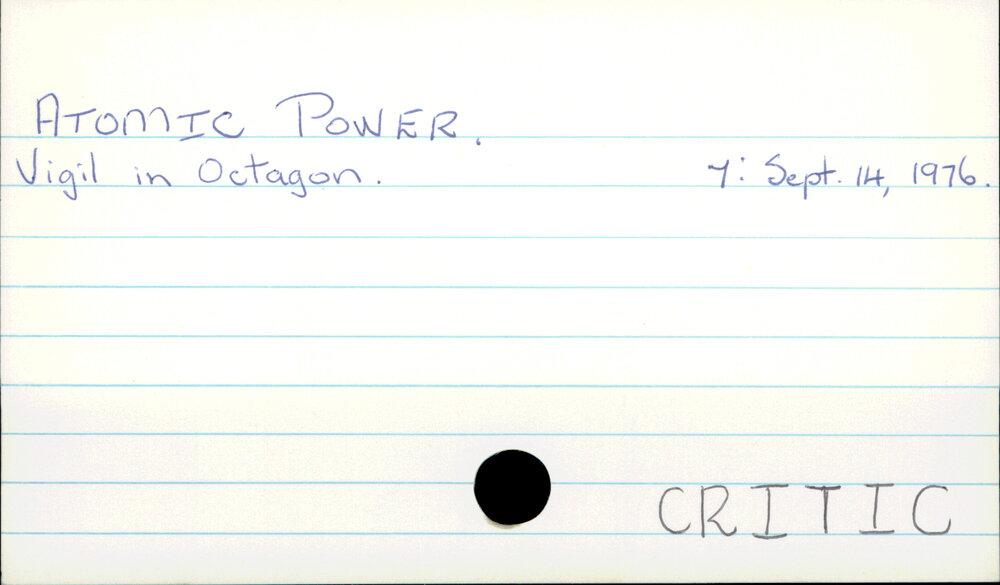 ATOMIC POWER.
Vigil in Octagon. 7: Sept. 14, 1976.
CRITIC